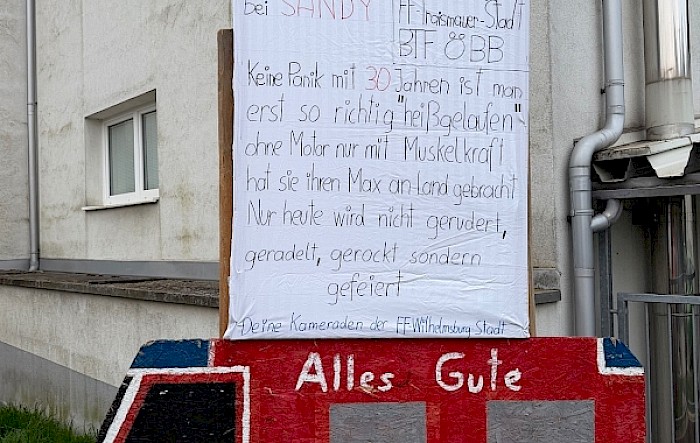 bei SANDY
FF-Traismauer-Stadt
BTF ÖBB
Keine Panik mit 30 Jahren ist man
erst so richtig "heißgelaufen"
ohne Motor nur mit Muskelkraft
hat sie ihren Max an land gebracht
Nur heute wird nicht gerudert,
geradelt, gerockt sondern
gefeiert
Deine Kameraden der FF Wilhelmsburg Stadt
Alles Gute